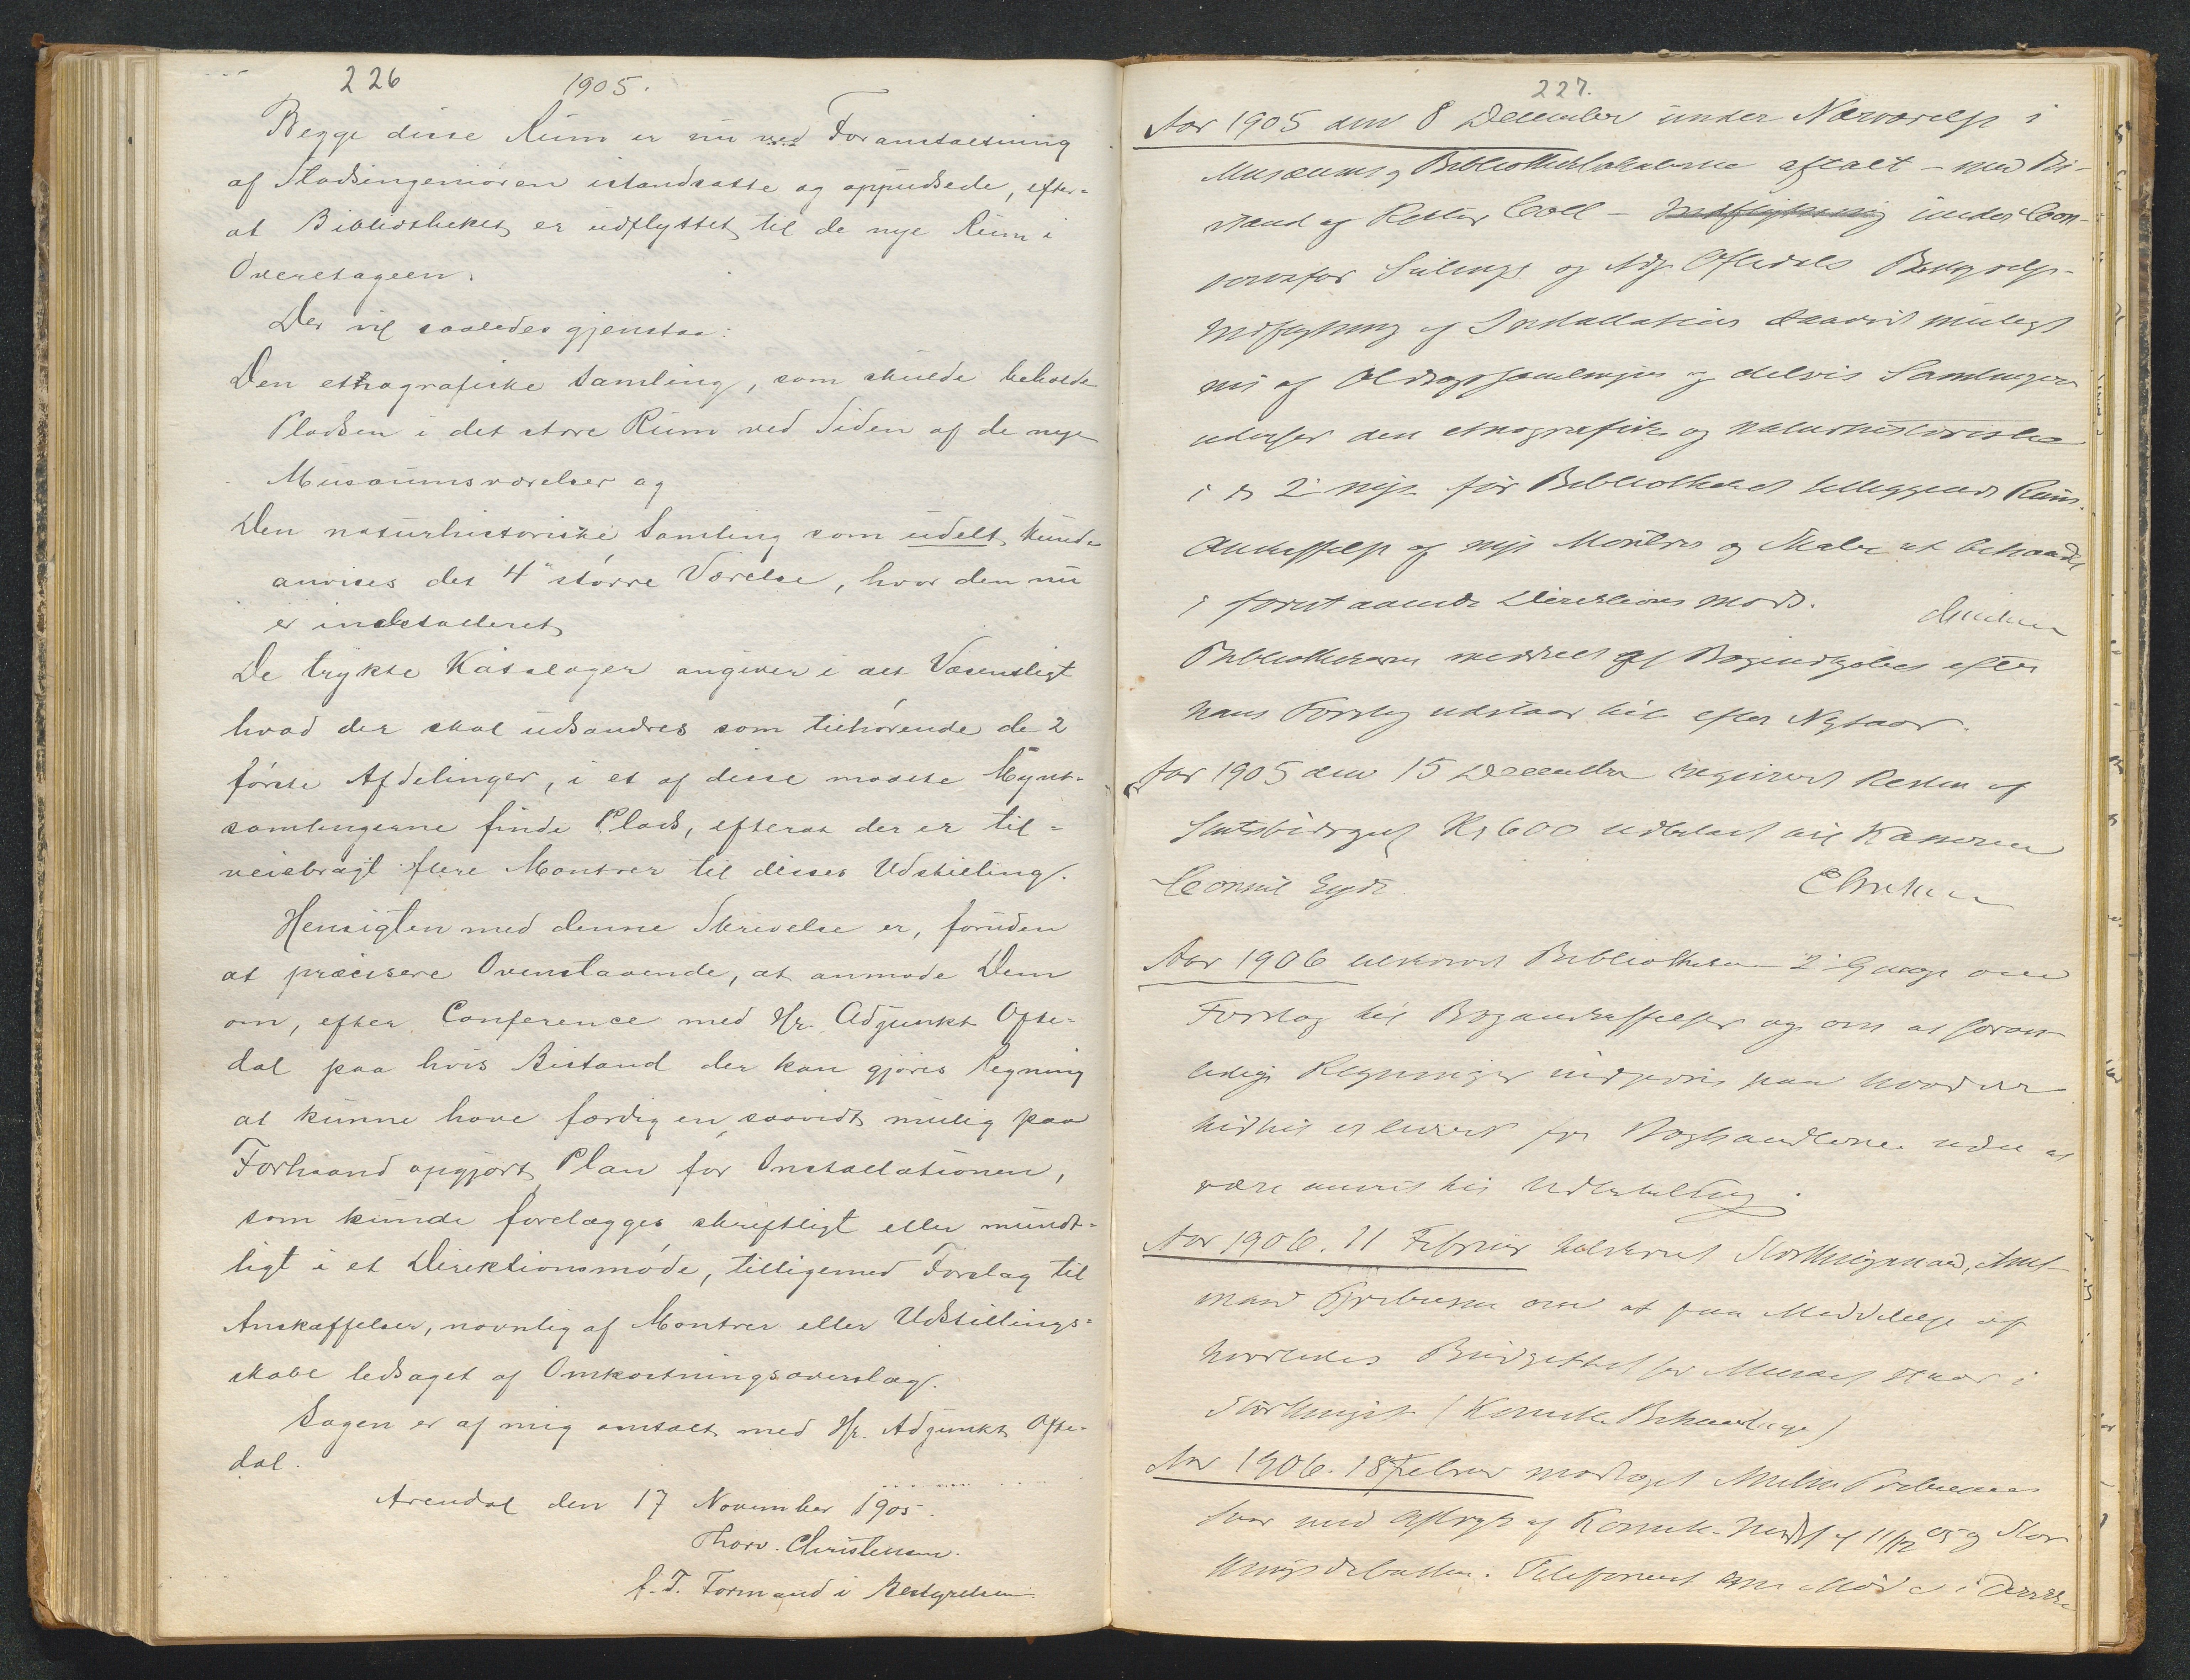 226
1905.
Begge disse Rum er nu ved Foranstaltning
af Stadsingeniøren istandsatte og oppudsede, efter-
at Bibliotheket er udflyttet til de nye Rum i
Overetagen.
Der vil saaledes gjenstaa:
Den etnografiske Samling, som skulde beholde
Pladsen i det store Rum ved Siden af de nye
Musæumsværelser og
Den naturhistoriske Samling som udelt kunde
anvises det 4de større Værelse, hvor den nu
er installeret
De trykte Kataloger angiver i det Væsentligt
hvad der skal udsondres som tilhørende de 2
første Afdelinger, i et af disse maatte Mynt-
samlingerne finde Plads, efterat der er til-
veiebragt flere Montrer til disses Udstilling.
Hensigten med denne Skrivelse er, foruden
at præcisere Ovenstaaende, at anmode Dem
om, efter Conference med Hr. Adjunkt Ofte-
dal paa hvis Bistand der kan gjøres Regning
at kunne have færdig en saavidt mulig paa
Forhaand opgjort Plan for Installationen,
som kunde forelægges skriftligt eller mundt-
ligt i et Direktionsmøde, tilligemed Forslag til
Anskaffelser, navnlig af Montrer eller Udstillings-
skabe ledsaget af Omkostningsoverslag.
Sagen er af mig omtalt med Hr. Adjunkt Ofte-
dal.
Arendal den 17 November 1905.
Thorv. Christensen.
f. T. Formand i Bestyrelsen.
227.
Aar 1905 den 8 December under Nærværelse i
Musæums og Bibliotheklokalerne aftalt – med Bi-
stand af Rektor Coll – Indflytning under Con-
servator og Adj. Oftedals Bestyrelse
Indflytning og Installation saavidt muligt
af Oldsagssamlingen og delvis Samlingen
den etnografiske og naturhistoriske
i de 2 nye for Bibliotheket Rum.
Anskaffelse af nye Montrer og Skabe at behandle
i forestaaende Direktions møde.
Bibliothekaren meddelt at Bogindkjøbet efter
hans Forslag udstaar til efter Nytaar.
Aar 1905 den 15 December Resten af
Statsbidraget Kr 600 udbetalt til Kassereren
Consul Eyde.
Aar 1906 tilskrevet Bibliothekaren 2 Gange om
Forslag til Boganskaffelser og om at foran-
ledige Regninger paa hvad der
hidtil er leveret fra Boghandlerne uden at
være anvist til Udbetaling.
Aar 1906. 11 Februar tilskrevet Storthingsmand, Amt-
mand om at faa Meddelelse af
hvorledes Budgettet for Musæet staar i
Storthinget (Komite Behandlinge)
Aar 1906. 18 Februar modtaget
Svar med Aftryk af Komite- af 11/12 05 og Stor-
thingsdebatten. Telefoneret om Møde i